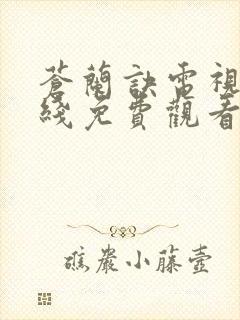 蒼蘭訣電視
綫免費觀看
礁巖小藤壺